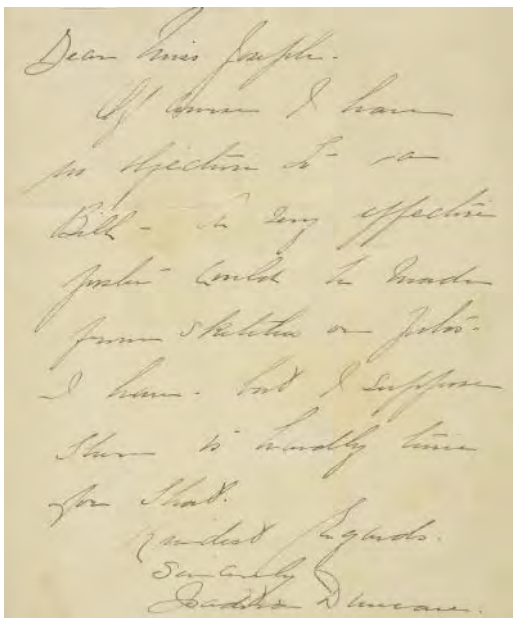 Dear Miss Joseph.
Of course I have
no objection to a
Bill - A very effective
poster could be made
from sketches or fotos -
I have - but I suppose
there is hardly time
for that.
Kindest Regards.
Sincerely
Isadora Duncan.